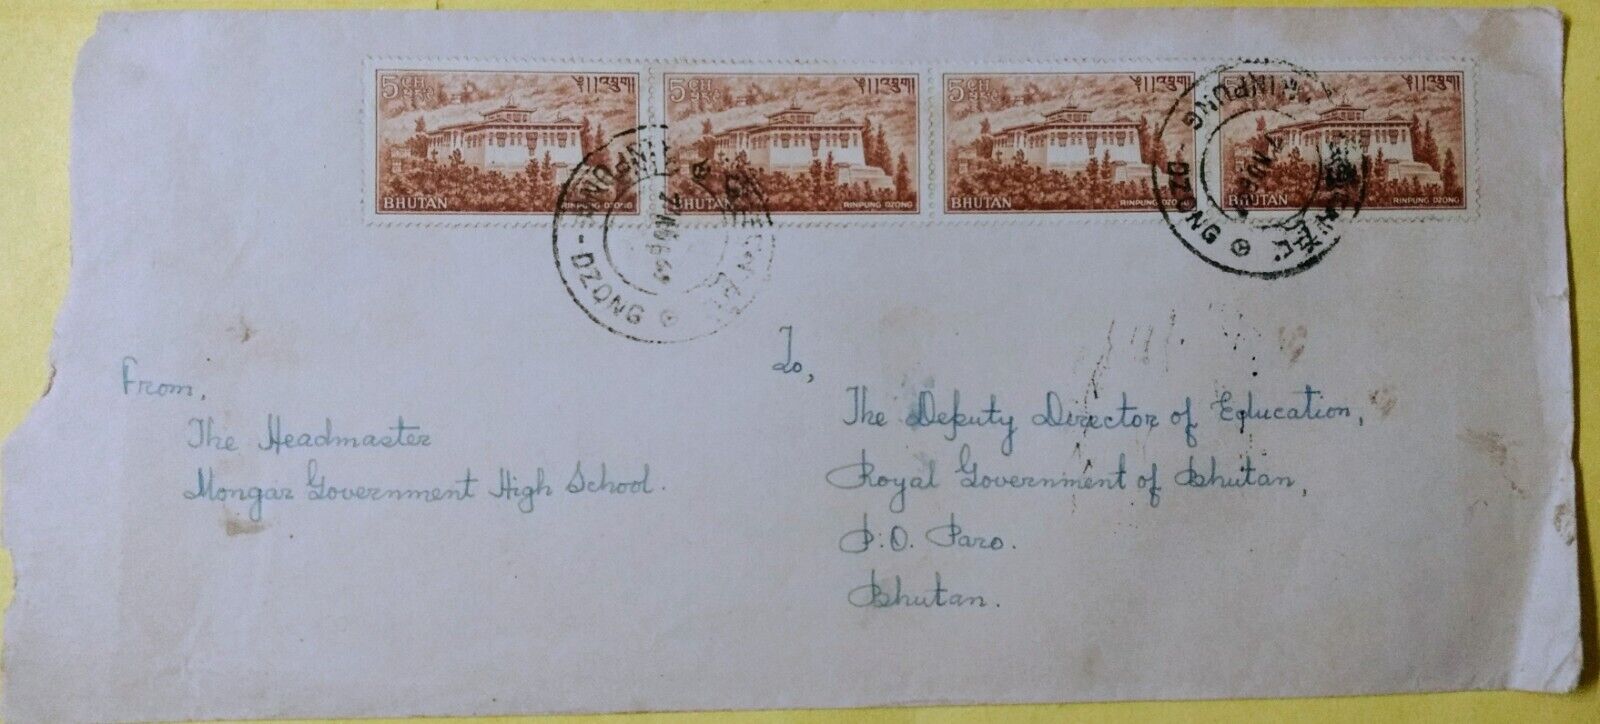 5 CH
BHUTAN
RINPUNG DZONG
5 CH
BHUTAN
RINPUNG DZONG
5 CH
BHUTAN
RINPUNG DZONG
5
BHUTAN
RINPUNG DZONG
DZONG
RINPUNG
DZONG
From,
The Headmaster
Mongar Government High School.
To,
The Deputy Director of Education,
Royal Government of Bhutan,
P.O. Paro.
Bhutan.